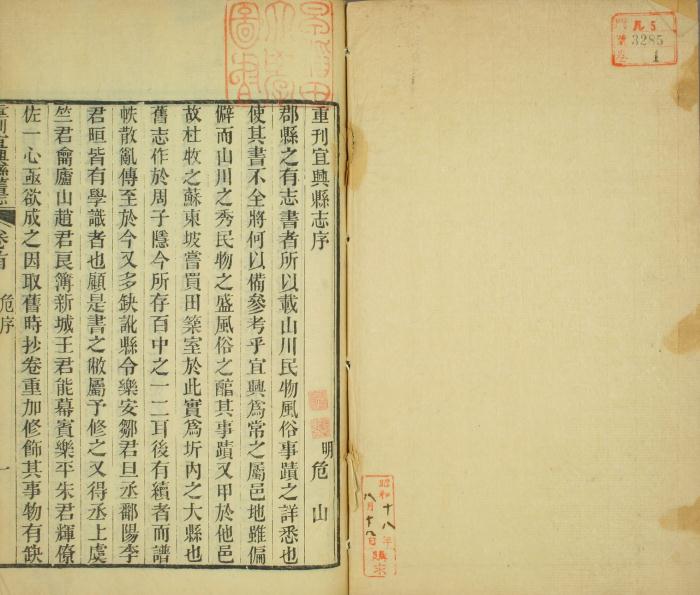 門 ル 5
號 3285
卷 1
昭和十八年
八月十八日購求
早稲田
大學
圖書
重刊宜興縣志序
明 危山
郡縣之有志書者所以載山川民物風俗事蹟之詳悉也
使其書不全將何以備參考乎宜興爲常之屬邑地雖偏
僻而山川之秀民物之盛風俗之醇其事蹟又甲於他邑
故杜牧之蘇東坡嘗買田築室於此實爲圻内之大縣也
舊志作於周子隱今所存百中之一二耳後有續者而譜
帙散亂傳至於今又多缺訛縣令樂安鄒君旦丞鄱陽李
君晅皆有學識者也顧是書之敝屬予修之又得丞上虞
竺君龠廬山趙君㫰簿新城王君能幕賓樂平朱君輝僚
佐一心亟欲成之因取舊時抄卷重加修飾其事物有缺
重刊宜興縣舊志 卷首 危序 一